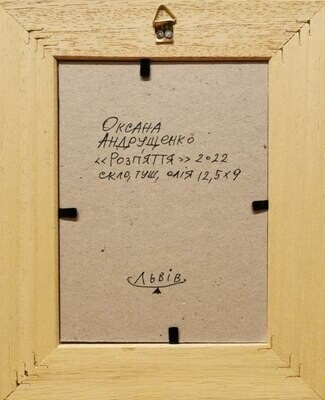 Оксана
Андрущенко
<<Розп'яття>> 2022
скло, туш, олія 12,5×9
Львів